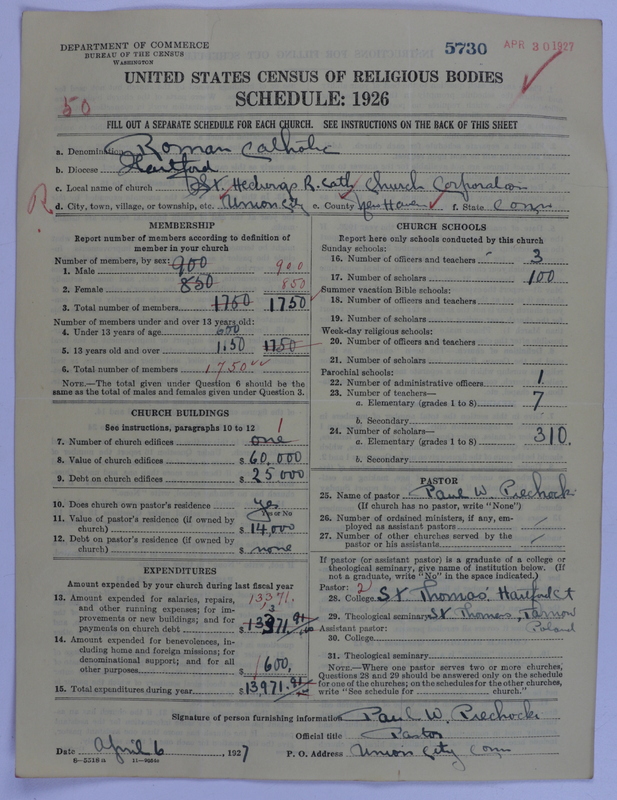 DEPARTMENT OF COMMERCE
BUREAU OF THE CENSUS
WASHINGTON
5730
APR 30 1927
UNITED STATES CENSUS OF RELIGIOUS BODIES
SCHEDULE: 1926
50
FILL OUT A SEPARATE SCHEDULE FOR EACH CHURCH. SEE INSTRUCTIONS ON THE BACK OF THIS SHEET
a. Denomination Roman Catholic
b. Diocese Hartford
c. Local name of church St. Hedwigs R. Cath Church Corporation
R.
d. City, town, village, or township, etc. Union City e. County New Haven f. State Conn
MEMBERSHIP
Report number of members according to definition of
member in your church
Number of members, by sex:
1. Male 900 900
2. Female 850 850
3. Total number of members 1750 1750
Number of members under and over 13 years old:
4. Under 13 years of age 600
5. 13 years old and over 1150 1750
6. Total number of members 1750
NOTE.—The total given under Question 6 should be the
same as the total of males and females given under Question 3.
CHURCH BUILDINGS
See instructions, paragraphs 10 to 12
7. Number of church edifices one 1
8. Value of church edifices $ 60,000
9. Debt on church edifices $ 25000
10. Does church own pastor's residence yes
Yes or No
11. Value of pastor's residence (if owned by
church) $ 14,000
12. Debt on pastor's residence (if owned by
church) $ none
EXPENDITURES
Amount expended by your church during last fiscal year
13. Amount expended for salaries, repairs, 13371.
and other running expenses; for im-
provements or new buildings; and for
payments on church debt $ 13371.91
14. Amount expended for benevolences, in-
cluding home and foreign missions; for
denominational support; and for all
other purposes $ 600,
15. Total expenditures during year $ 13,971.91
CHURCH SCHOOLS
Report here only schools conducted by this church
Sunday schools:
16. Number of officers and teachers 3
17. Number of scholars 100
Summer vacation Bible schools:
18. Number of officers and teachers
19. Number of scholars
Week-day religious schools:
20. Number of officers and teachers
21. Number of scholars
Parochial schools:
22. Number of administrative officers 1
23. Number of teachers—
a. Elementary (grades 1 to 8) 7
b. Secondary
24. Number of scholars—
a. Elementary (grades 1 to 8) 310.
b. Secondary
PASTOR
25. Name of pastor Paul W. Piechocki
(If church has no pastor, write "None")
26. Number of ordained ministers, if any, em-
ployed as assistant pastors
27. Number of other churches served by the
pastor or his assistants
If pastor (or assistant pastor) is a graduate of a college or
theological seminary, give name of institution below. (If
not a graduate, write "No" in the space indicated.)
Pastor: 2
28. College St Thomas, Hartford Ct
29. Theological seminary St Thomas, Tarnow
Poland
Assistant pastor:
30. College
31. Theological seminary
NOTE.—Where one pastor serves two or more churches,
Questions 28 and 29 should be answered only on the schedule
for one of the churches; on the schedules for the other churches,
write "See schedule for church."
Signature of person furnishing information Paul W. Piechocki
Official title Pastor
Date April 6, 1927 P. O. Address Union City Conn